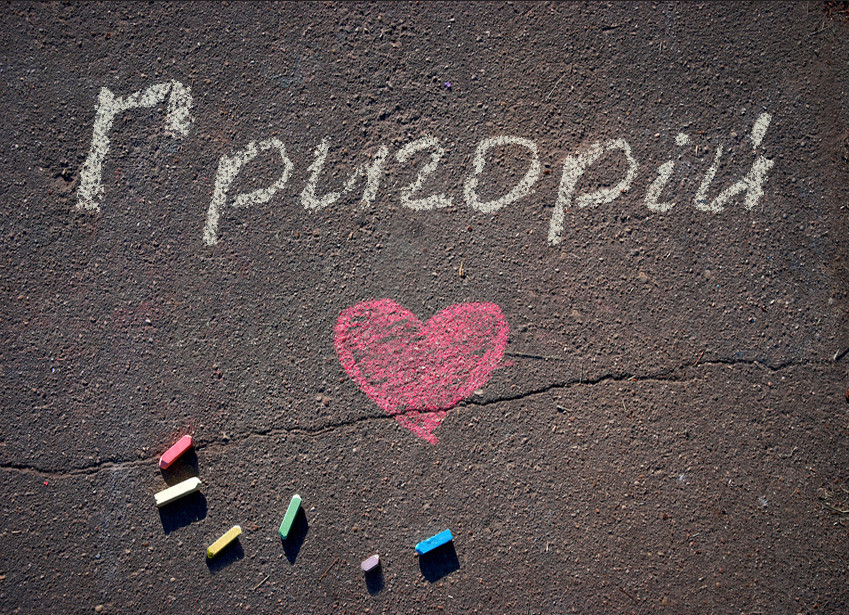 Григорій